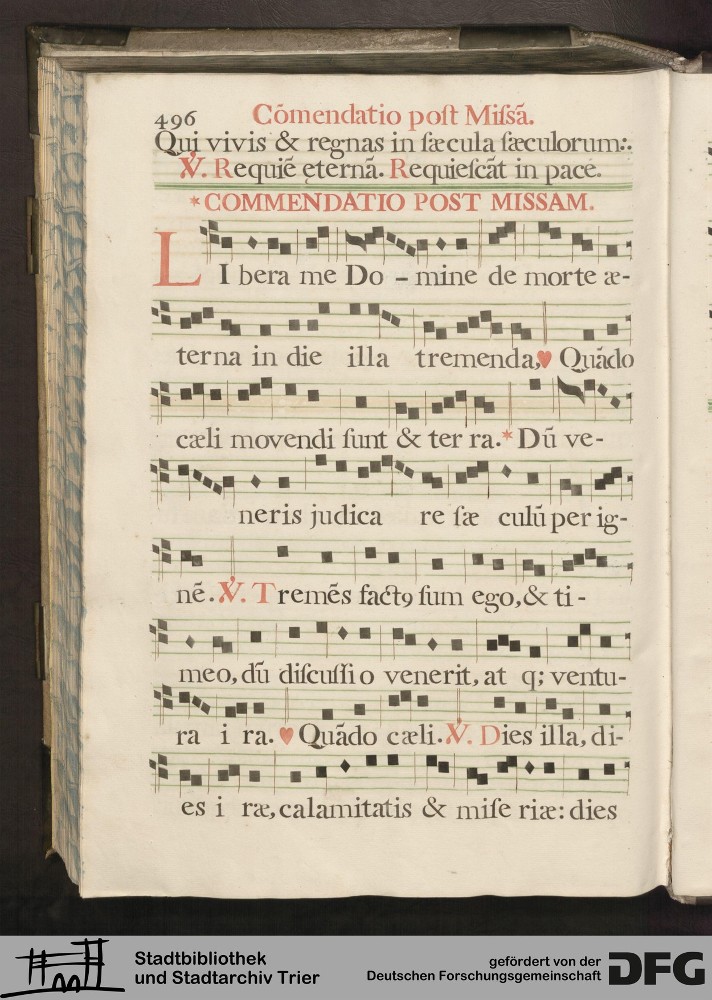 496 Cōmendatio poſt Miſsā.
Qui vivis & regnas in ſæcula ſæculorum:.
℣. Requiē ęternā. Requieſcāt in pace.
*COMMENDATIO POST MISSAM.
LIbera me Do - mine de morte æ-
terna in die illa tremenda,♥ Quādo
cæli movendi ſunt & ter ra.* Dū ve-
neris judica re ſæ culū per ig-
nē. ℣. Tremēs factꝰ ſum ego,& ti-
meo, dū diſcuſſio venerit, at q; ventu-
ra i ra.♥ Quādo cæli. ℣. Dies illa, di-
es i ræ, calamitatis & miſe riæ: dies
Stadtbibliothek
und Stadtarchiv Trier
gefördert von der
Deutschen Forschungsgemeinschaft
DFG